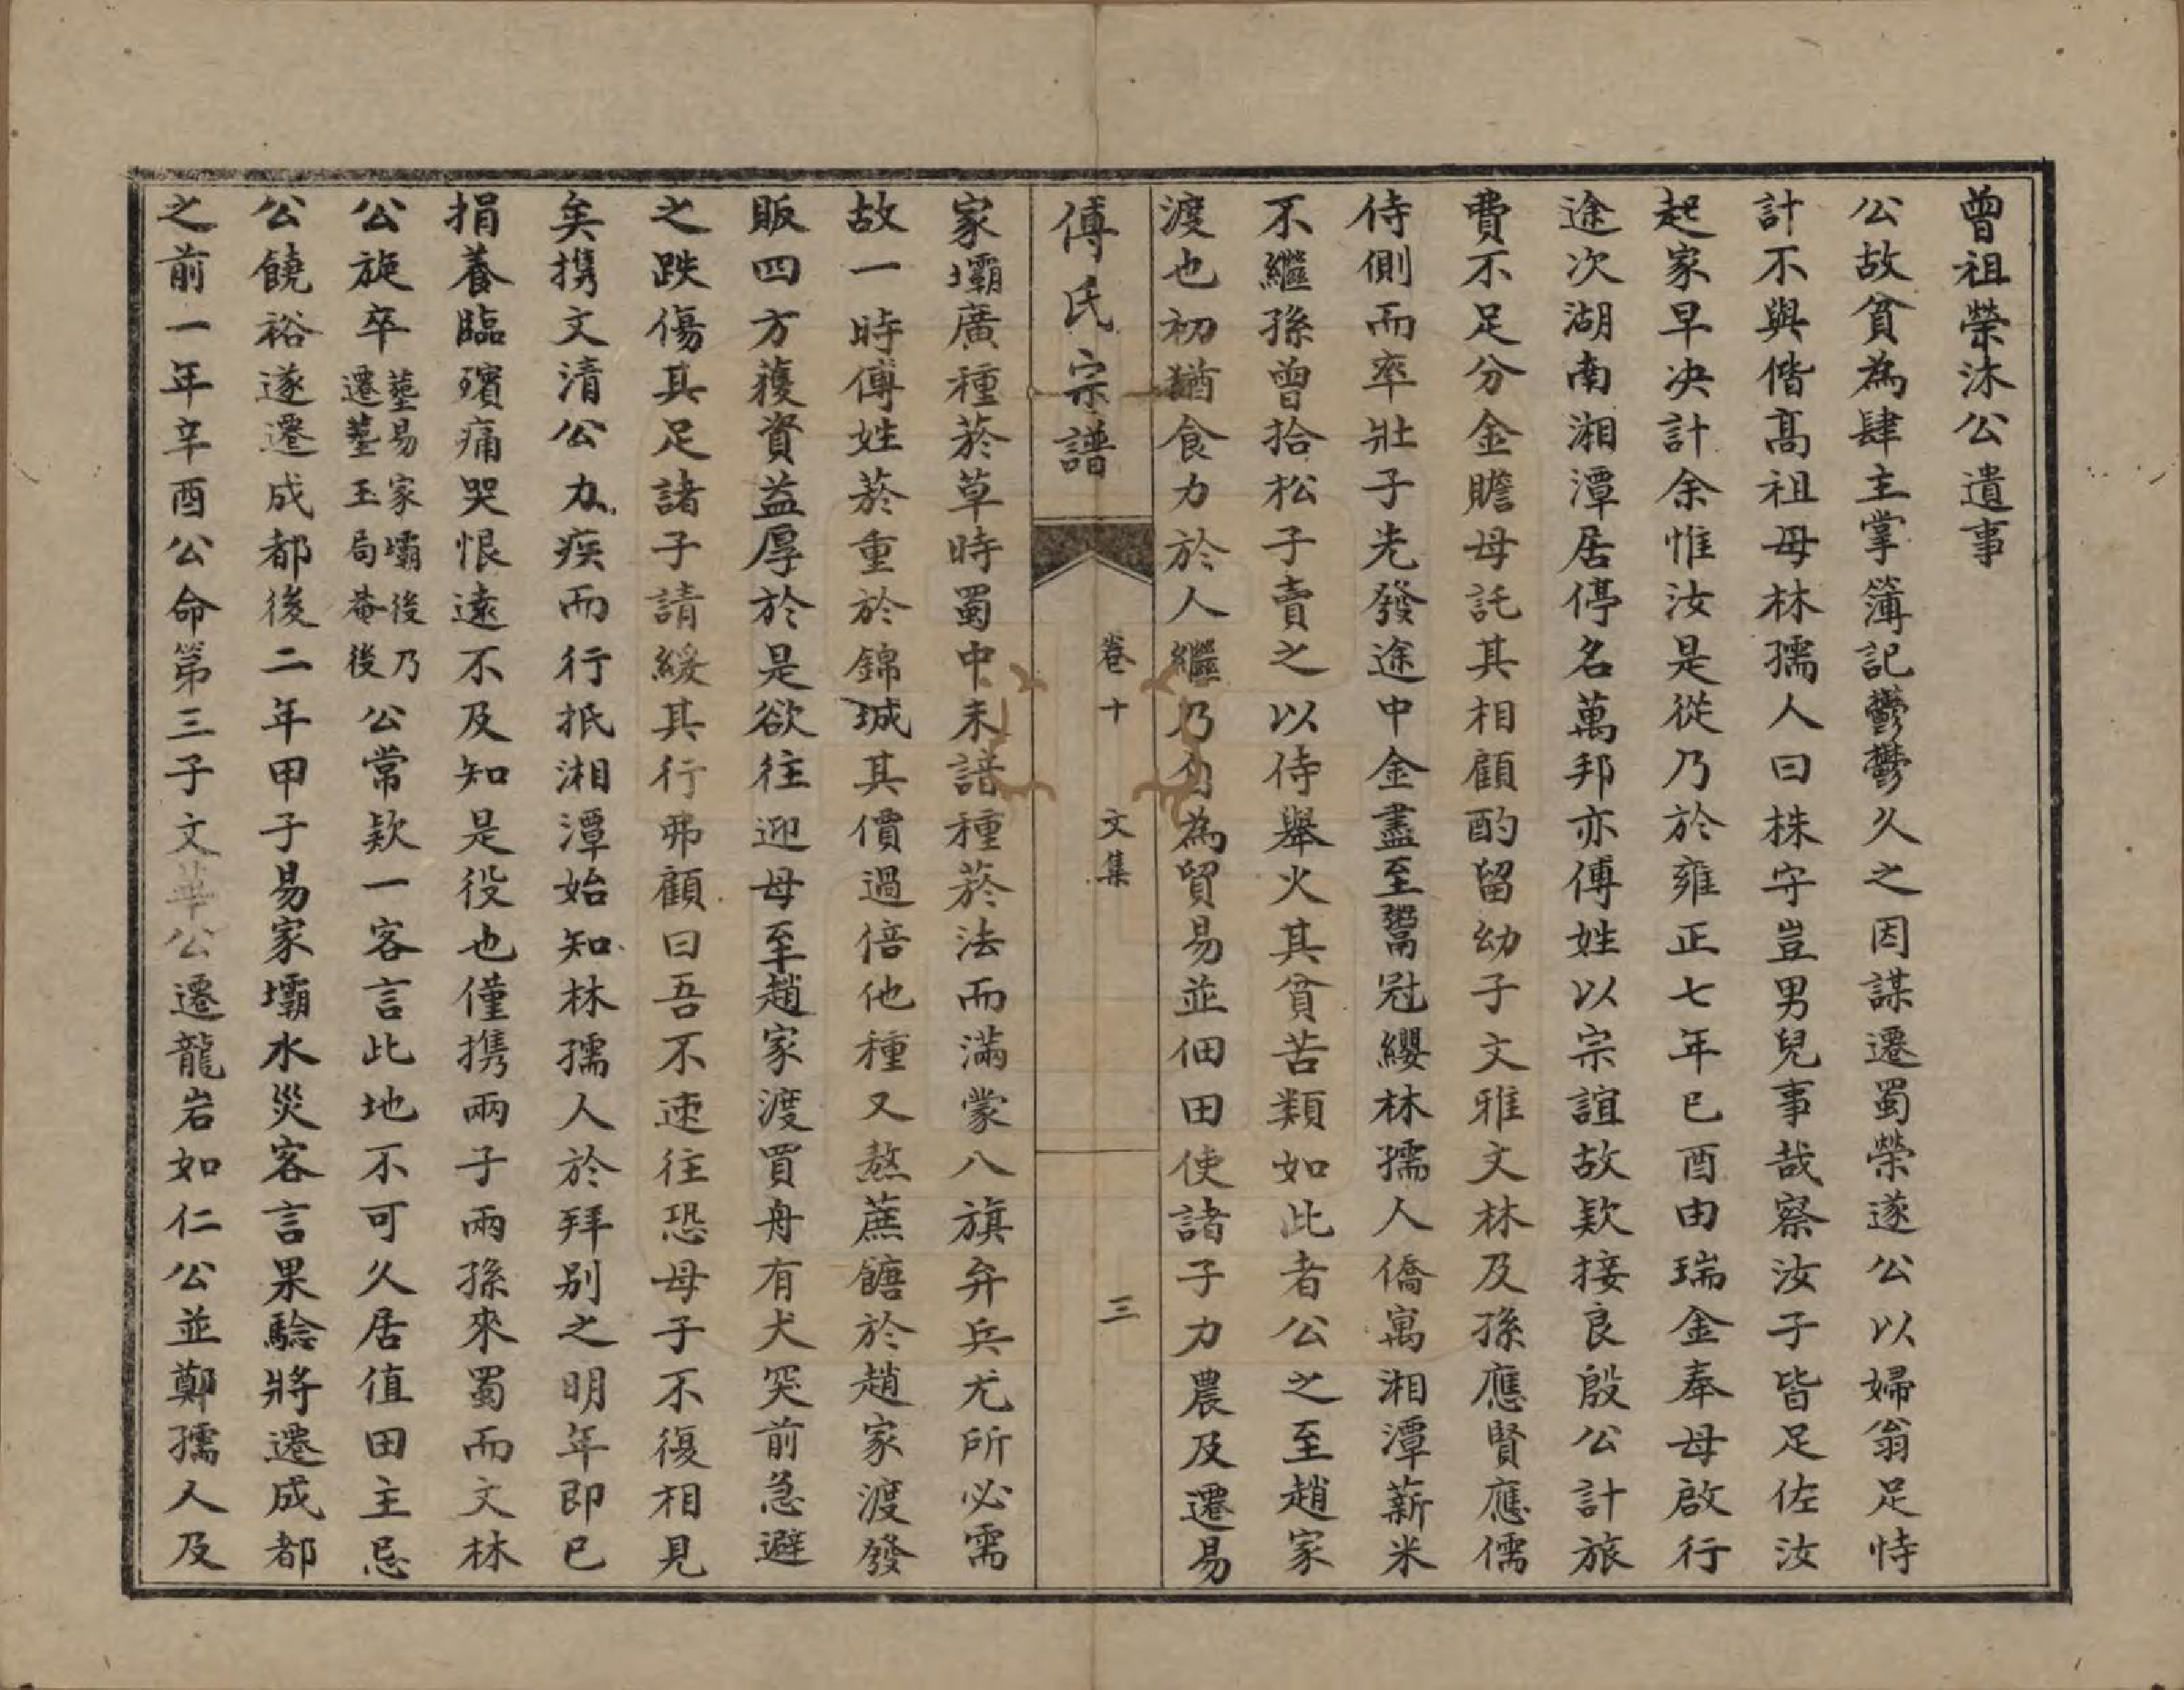 曾祖榮沐公遺事
公故貧為肆主掌簿記鬱鬱久之因謀遷蜀榮遂公以婦翁足恃
計不與偕高祖母林孺人曰株守豈男兒事哉察汝子皆足佐汝
起家早决計余惟汝是從乃於雍正七年已酉由瑞金奉母啟行
途次湖南湘潭居停名萬邦亦傅姓以宗誼故欵接良殷公計旅
費不足分金贍母託其相顧酌留幼子文雅文林及孫應賢應儒
侍側而率壯子先發途中金盡至鬻冠纓林孺人僑寓湘潭薪米
不繼孫曾拾松子賣之以侍舉火其貧苦類如此者公之至趙家
渡也初猶食力於人繼乃自為貿易並佃田使諸子力農及遷易
傅氏宗譜
卷十
文集
三
家壩廣種菸草時蜀中未諳種菸法而滿蒙八旗弁兵尤所必需
故一時傅姓菸重於錦城其價過倍他種又熬蔗餹於趙家渡發
販四方獲資益厚於是欲往迎母至趙家渡買舟有犬突前急避
之跌傷其足諸子請緩其行弗顧曰吾不速往恐母子不復相見
矣携文清公力疾而行抵湘潭始知林孺人於拜别之明年即已
捐養臨殯痛哭恨遠不及知是役也僅携兩子兩孫來蜀而文林
公旋卒塟易家壩後乃遷塟玉局菴後公常欵一客言此地不可久居值田主忌
公饒裕遂遷成都後二年甲子易家壩水災客言果驗將遷成都
之前一年辛酉公命第三子文華公遷龍岩如仁公並鄭孺人及